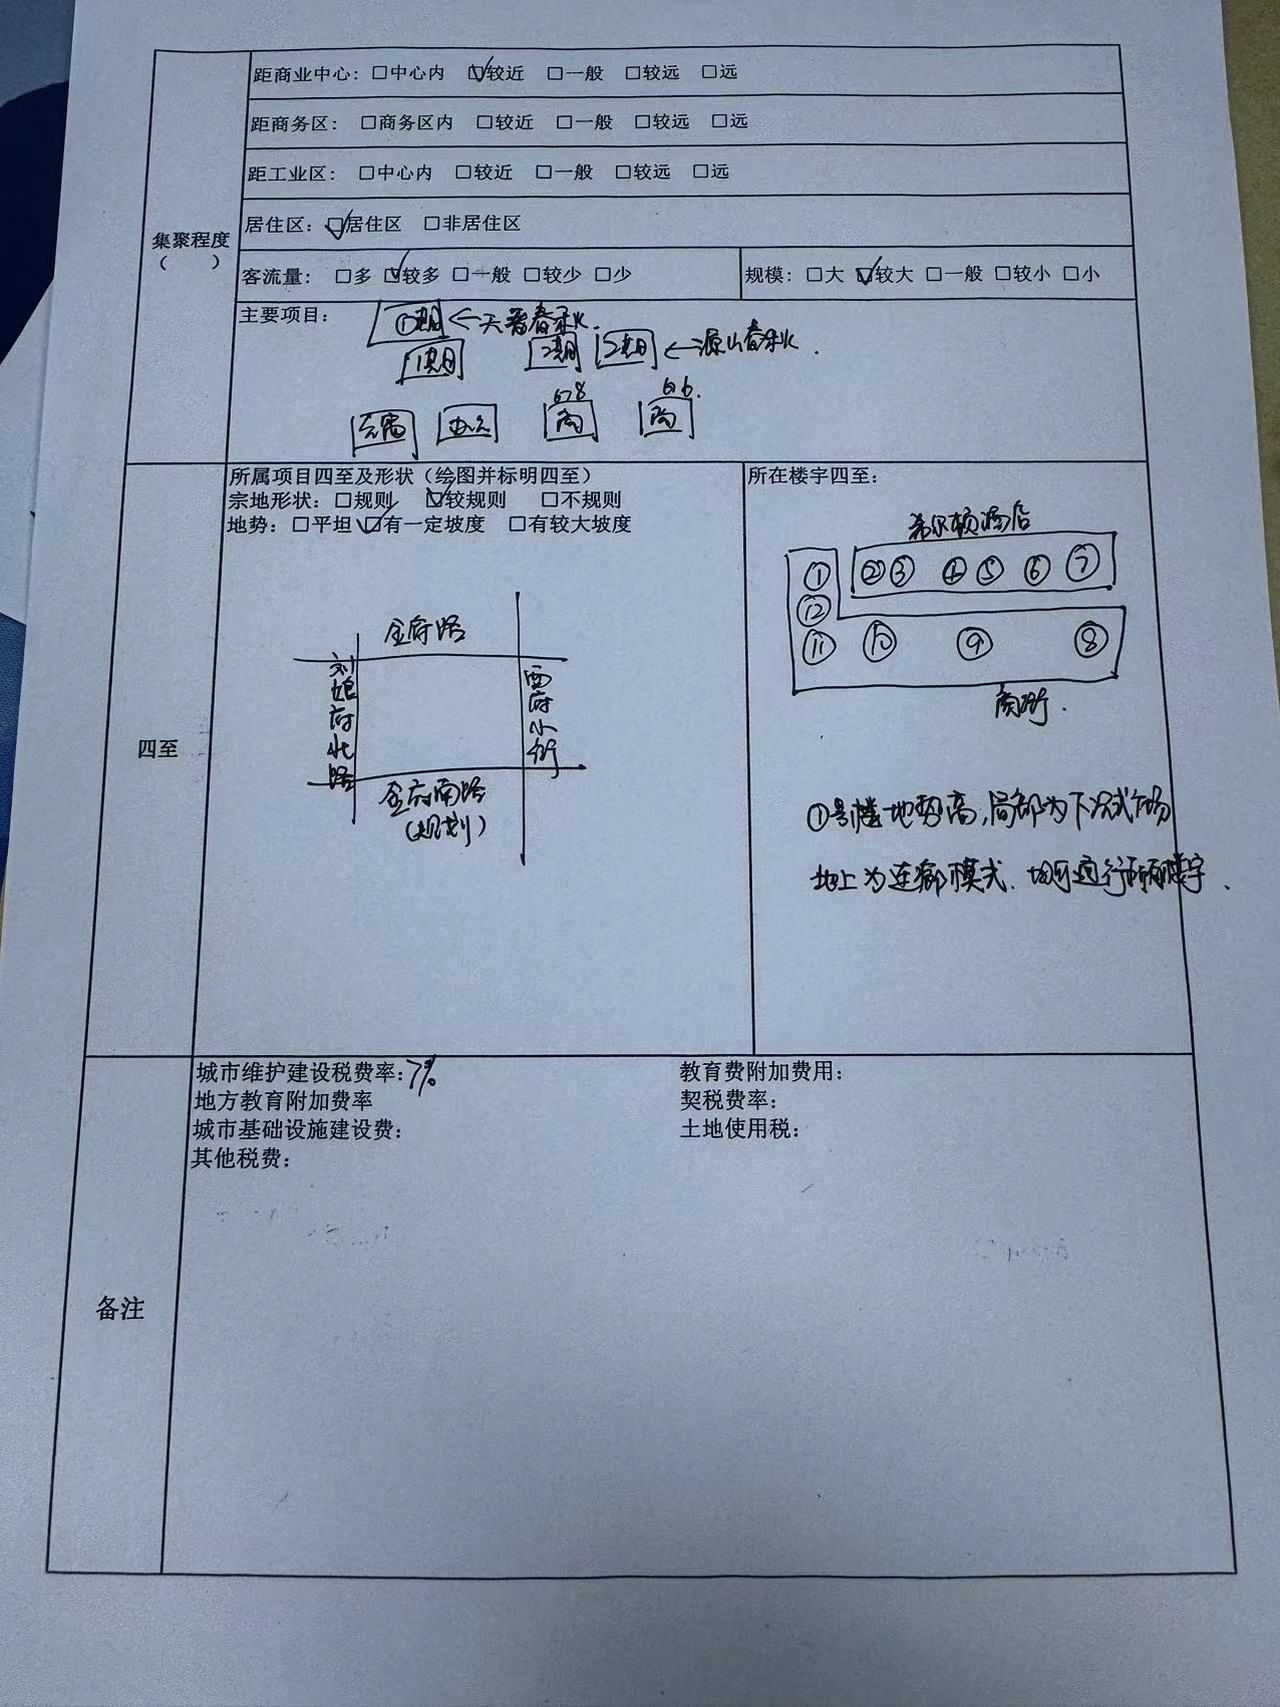 距商业中心：□中心内 ☑较近 □一般 □较远 □远
距商务区： □商务区内 □较近 □一般 □较远 □远
距工业区： □中心内 □较近 □一般 □较远 □远
集聚程度
（ ）
居住区：☑居住区 □非居住区
客流量： □多 ☑较多 □一般 □较少 □少
规模：□大 ☑较大 □一般 □较小 □小
主要项目：
①期 ←天誉春秋
1期 2期 2期 ←源山春秋
678 66
商 商
办公
四至
所属项目四至及形状（绘图并标明四至）
宗地形状：□规则 ☑较规则 □不规则
地势：□平坦 ☑有一定坡度 □有较大坡度
金府路
刘娘府北路
西府小街
金府南路
（规划）
所在楼宇四至：
希尔顿酒店
① ② ③ ④ ⑤ ⑥ ⑦
⑫
⑪ ⑩ ⑨ ⑧
商街.
①号楼地势高,局部为下沉式广场
地上为连廊模式.
备注
城市维护建设税费率：7%
教育费附加费用：
地方教育附加费率
契税费率：
城市基础设施建设费：
土地使用税：
其他税费：